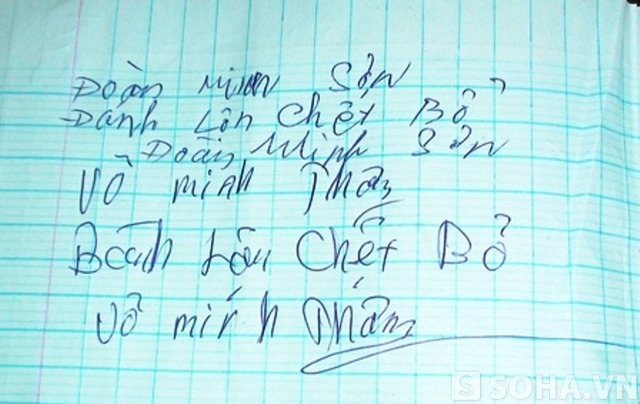 Đoàn Minh Sơn
Đánh Lộn Chết Bỏ
Đoàn Minh Sơn
Võ minh
Lộn Chết Bỏ
Võ minh
SOHA.VN